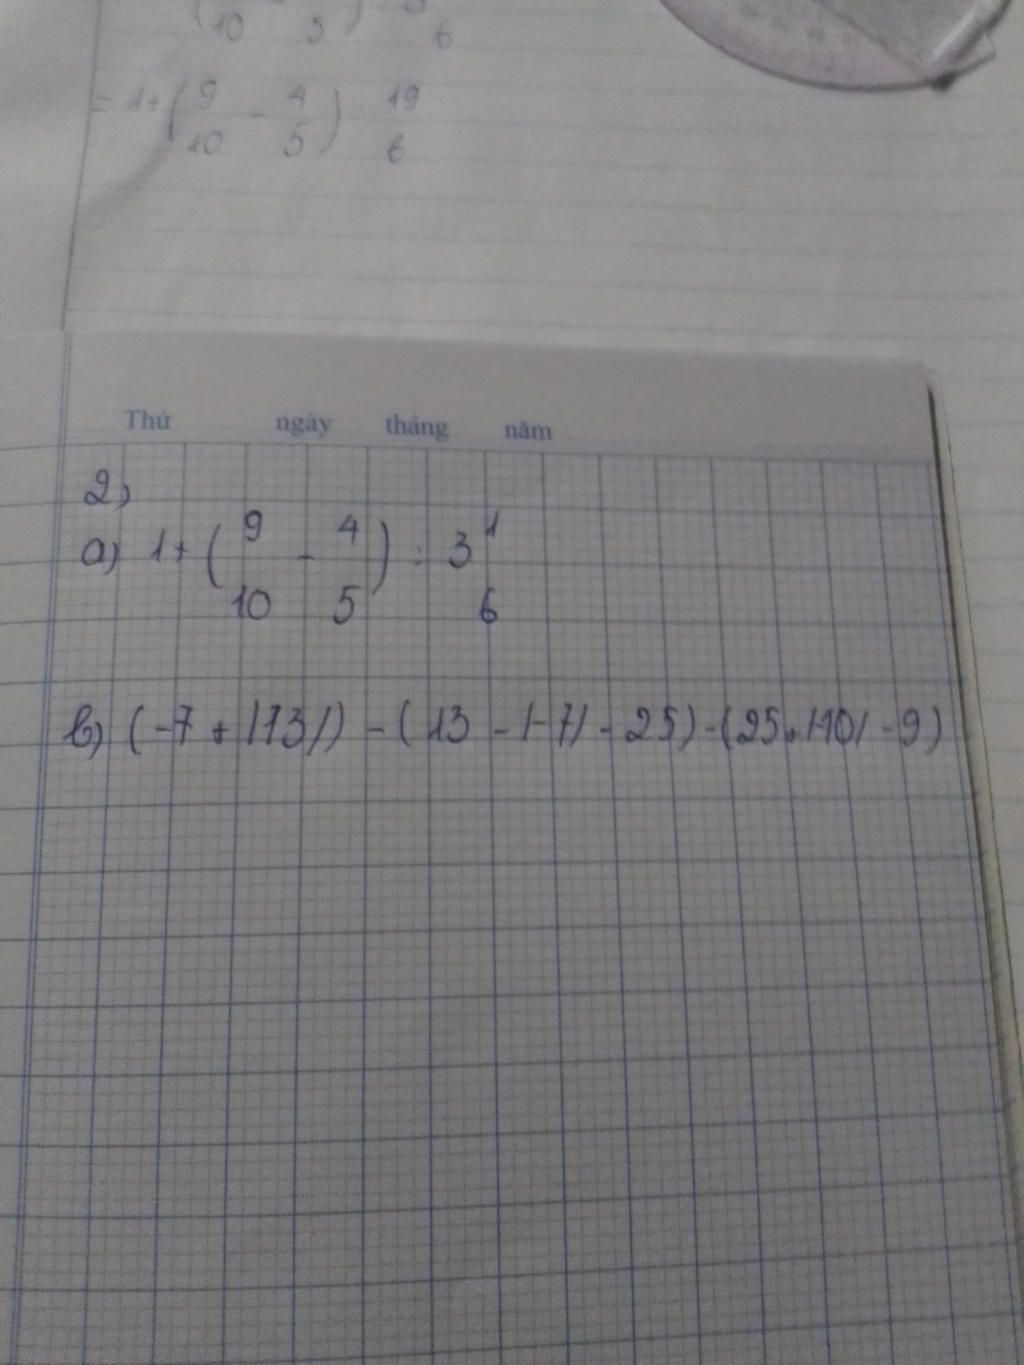 10 5 6
= 1 + ( 9/10 - 4/5 ) 19/6
Thứ ngày tháng năm
2)
a) 1 + ( 9/10 - 4/5 ) : 3 1/6
b) (-7 + |13|) - (13 - |-7| - 25) - (25 + |-10| - 9)